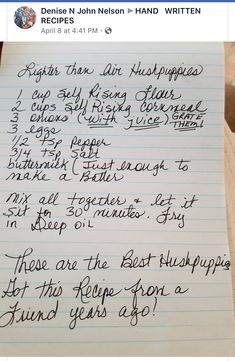 Denise N John Nelson ▸ HAND WRITTEN
RECIPES
April 8 at 4:41 PM ·
Lighter than Air Huskpuppies
1 cup Self Rising Flour
2 cups Self Rising Cornmeal
3 onions (with juice) GRATE
THEM!
3 eggs
1/2 tsp Pepper
3/4 tsp Salt
buttermilk (Just enough to
make a Batter
Mix all together & let it
Sit for 30 minutes. Fry
in Deep oil
These are the Best Huskpuppies
Got this Recipe from a
Friend years ago!